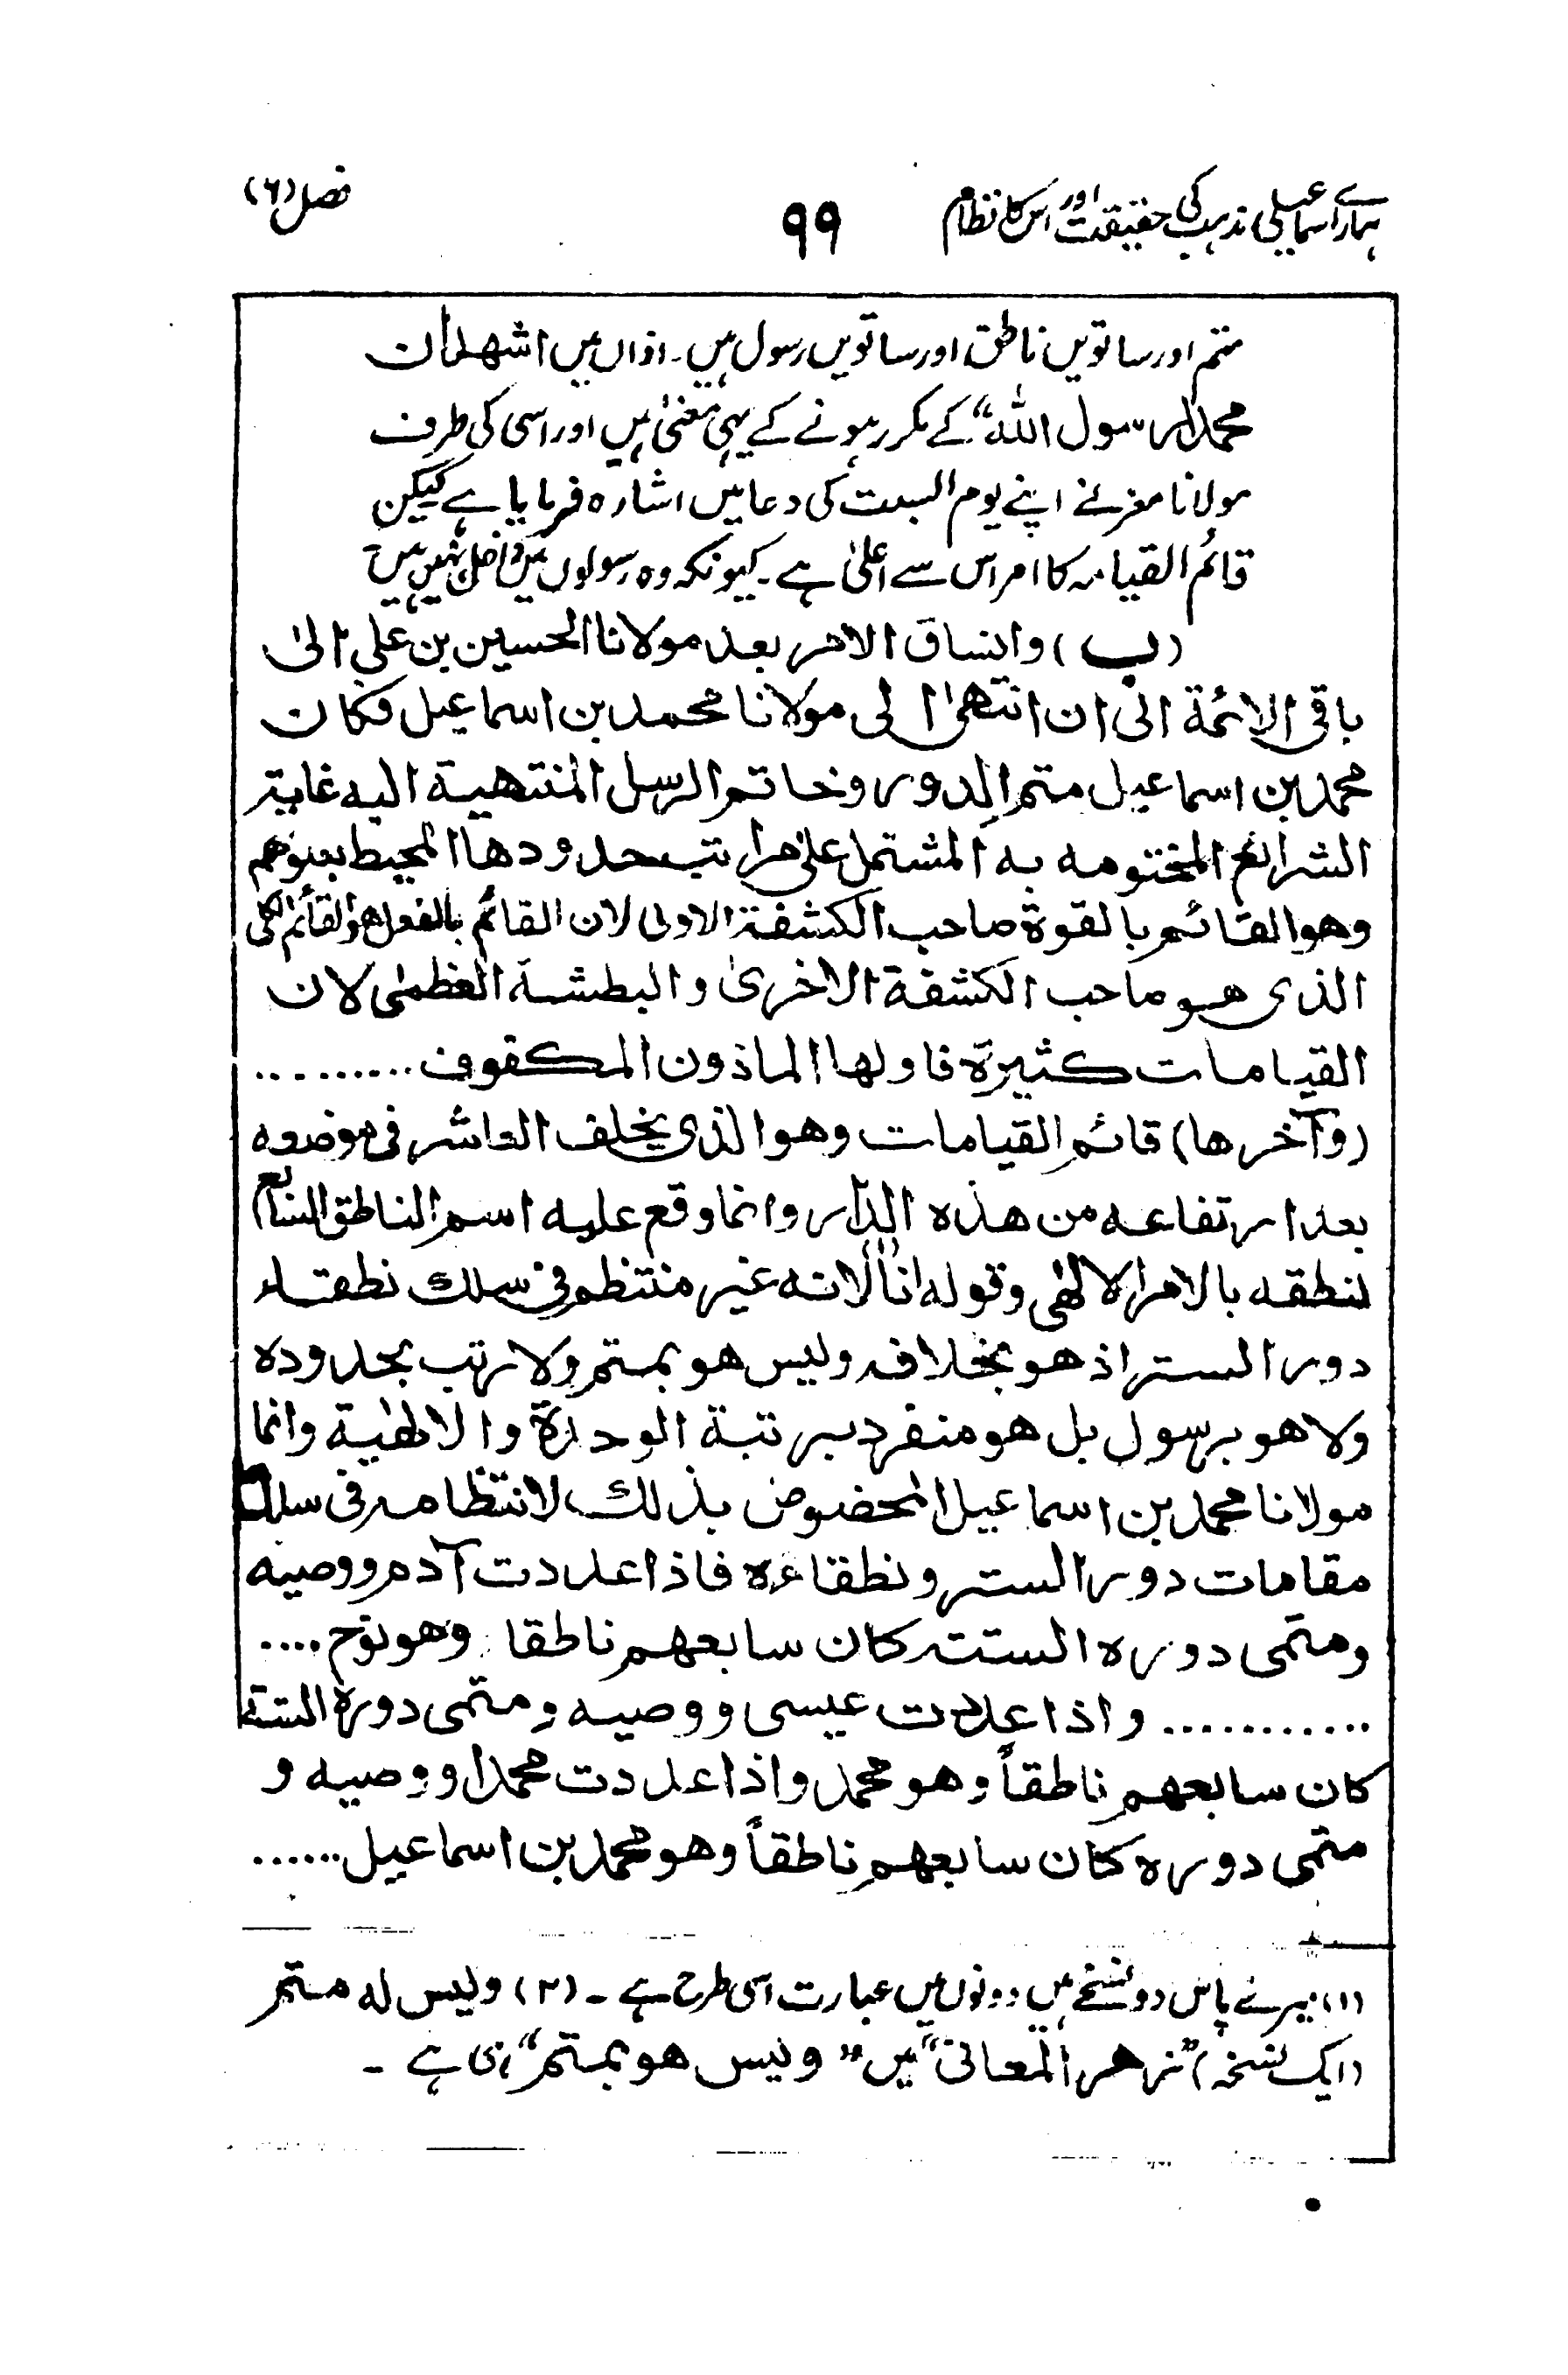 ہمارے اسماعیلی مذہب کی حقیقت اور اس کا نظام ۹۹ فصل (۶)
متم اور ساتویں ناطق اور ساتویں رسول ہیں۔ اذاں میں اشهدان
محمدا رسول الله“ کے مکرر ہونے کے یہی معنیٰ ہیں اور اسی کی طرف
مولانا معز نے اپنے یوم السبت کی دعا میں اشارہ فرمایا ہے لیکن
قائم القیامہ کا امر اس سے اعلیٰ ہے۔ کیونکہ وہ رسولوں میں داخل نہیں ہیں
(ب) وانساق الامر بعد مولانا الحسین بن علی الیٰ
باقی الائمۃ الی ان انتهیٰ الی مولانا محمد بن اسماعیل فکان
محمد بن اسماعیل متم الدور وخاتم الرسل المنتهیة الیه غایة
الشرائع المختومه به المشتمل علیٰ مراتب حدودها المحیط بعلومهم
وهو القائم بالقوة صاحب الکشفة الاولی لان القائم بالفعل هو القائم الکلی
الذی هو صاحب الکشفة الاخریٰ والبطشة العظمٰی لان
القیامات کثیرة فاولها الماذون المکفوف ..........
(وآخرها) قائم القیامات وهو الذی یخلف العاشر فی موضعه
بعد ارتفاعه من هذه الدار وانما وقع علیه اسم الناطق السابع
لنطقه بالامر الالٰهی وقوله انا لانه غیر منتظم فی سلک نطقاء
دور الستر اذ هو بخلافه ولیس هو بمتم ولا رتب بحدوده
ولا هو برسول بل هو منفرد برتبة الوحدة والالٰهیة وانما
مولانا محمد بن اسماعیل المخصوص بذلک لانتظامه فی سلک
مقامات دور الستر ونطقاءه فاذا عددت آدم ووصیه
ومتمی دوره الستة کان سابعهم ناطقا وهو نوح ....
........... واذا عددت عیسی ووصیه ومتمی دوره الستة
کان سابعهم ناطقاً وهو محمد واذا عددت محمدا ووصیه و
متمی دوره کان سابعهم ناطقاً وهو محمد بن اسماعیل ......
(۱) میرے پاس دو نسخے ہیں دونوں میں عبارت اسی طرح ہے ۔ (۲) ولیس له متم
(ایک نسخہ) ”زهر المعانی“ میں ”ولیس هو بمتم“ ہی ہے ۔